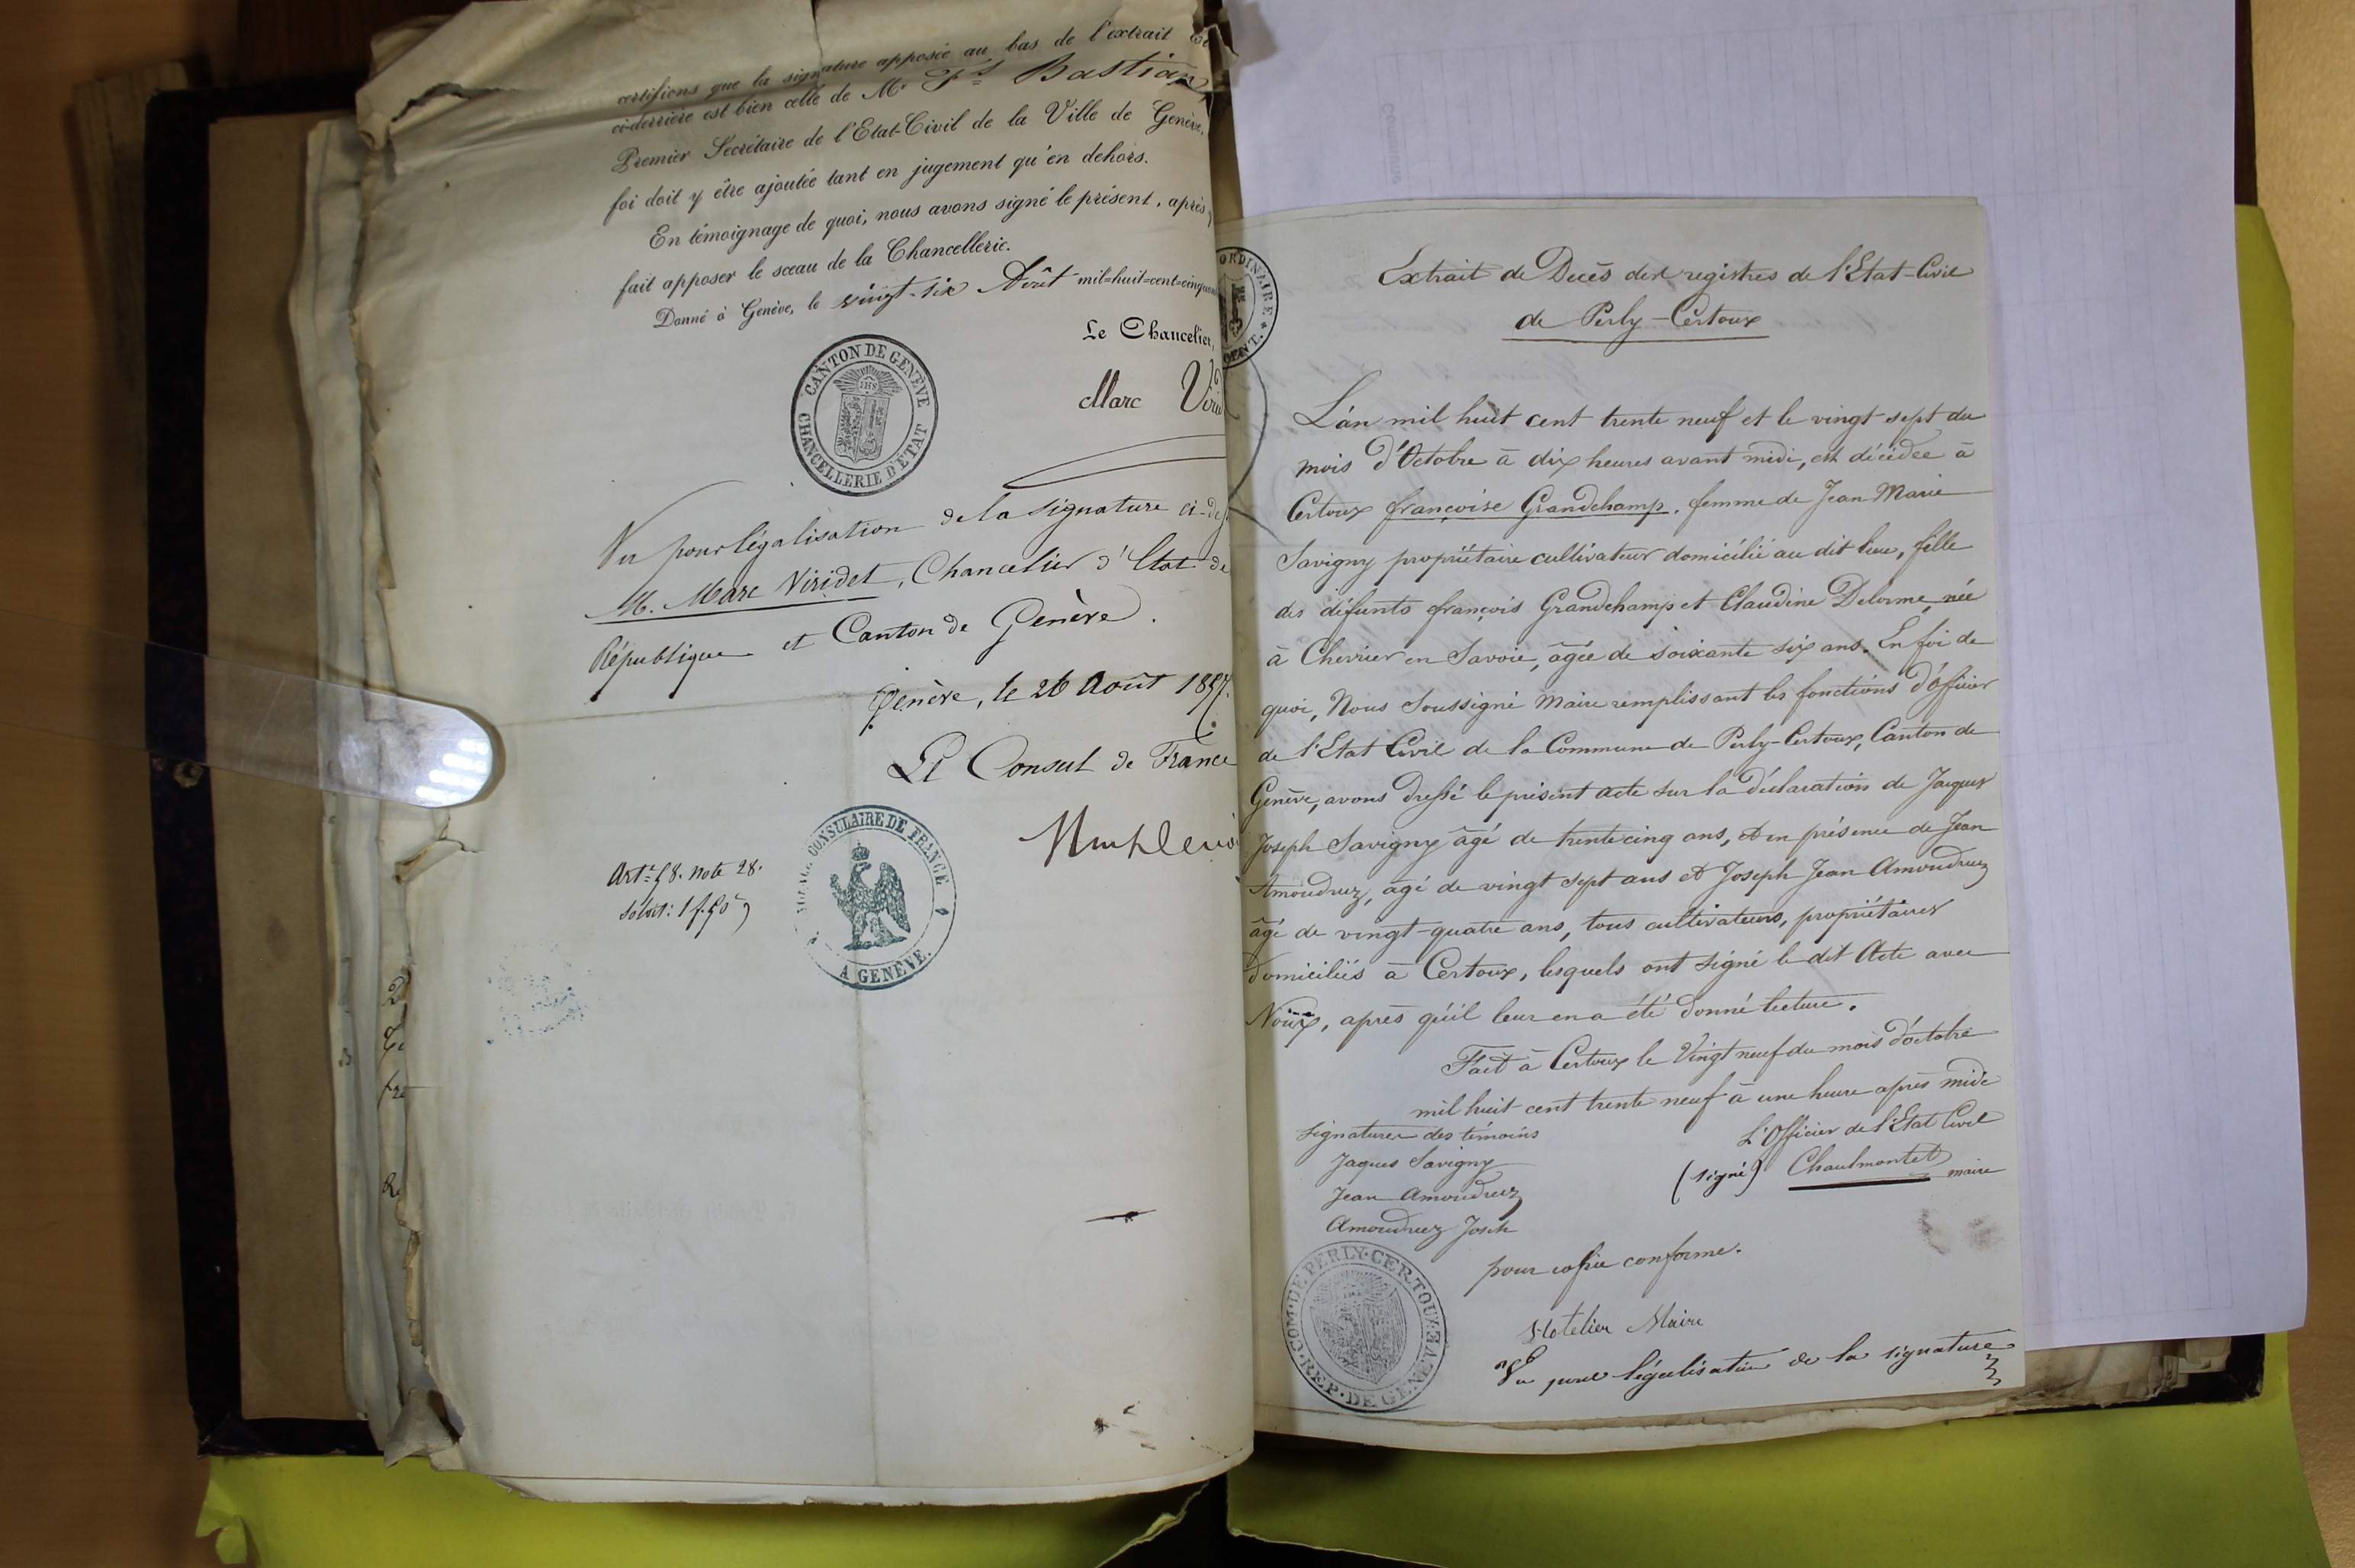 certifions que la signature apposée au bas de l'extrait
ci-derrière est bien celle de Mr. Fs Bastian
Premier Secrétaire de l'Etat-Civil de la Ville de Genève.
foi doit y être ajoutée tant en jugement qu'en dehors.
En témoignage de quoi, nous avons signé le présent, après
fait apposer le sceau de la Chancellerie.
Donné à Genève, le vingt-six Août mil=huit=cent=cinquan
Le Chancelier,
Marc
CANTON DE GENÈVE
CHANCELLERIE D'ÉTAT
IHS
Vu pour légalisation de la signature ci-des
M. Marc Viridet, Chancelier d'Etat de
République et Canton de Genève.
Genève, le 26 Août 1857.
Le Consul de France
CONSULAIRE DE FRANCE
A GENÈVE.
Artc 58. Note 28.
1 f. 50c
ORDINAIRE
Extrait de Decès des registres de l'Etat-Civil
de Perly-Certoux
L'án mil huit cent trente neuf et le vingt sept du
mois d'Octobre à dix heures avant midi, est décédée à
Certoux françoise Grandchamp, femme de Jean Marie
Savigny propriétaire cultivateur domicilié au dit lieu, fille
des défunts françois Grandchamp et Claudine Delorme, née
à Chevrier en Savoie, âgée de soixante six ans. En foi de
quoi, Nous Soussigné Maire remplissant les fonctions d'officier
de l'Etat Civil de la Commune de Perly-Certoux, Canton de
Genève, avons dressé le présent acte sur la déclaration de Jaques
Joseph Savigny âgé de trente cinq ans, et en présence de Jean
Amoudruz, agé de vingt sept ans et Joseph Jean Amoudruz
âgé de vingt-quatre ans, tous cultivateurs, propriétaires
domiciliés à Certoux, lesquels ont signé le dit Acte avec
Noux, après qu'il leur en a été donné lecture.
Fait à Certoux le Vingt neuf du mois d'octobre
mil huit cent trente neuf à une heure après midi
Signatures des témoins
L'Officier de l'Etat Civil
Jaques Savigny
(signé) Chaulmontet maire
Jean Amoudruz
Amoudruz Josch
pour copie conforme.
COM. DE PERLY-CERTOUX
REP. DE GENEVE
Maire
Vu pour légalisation de la signature